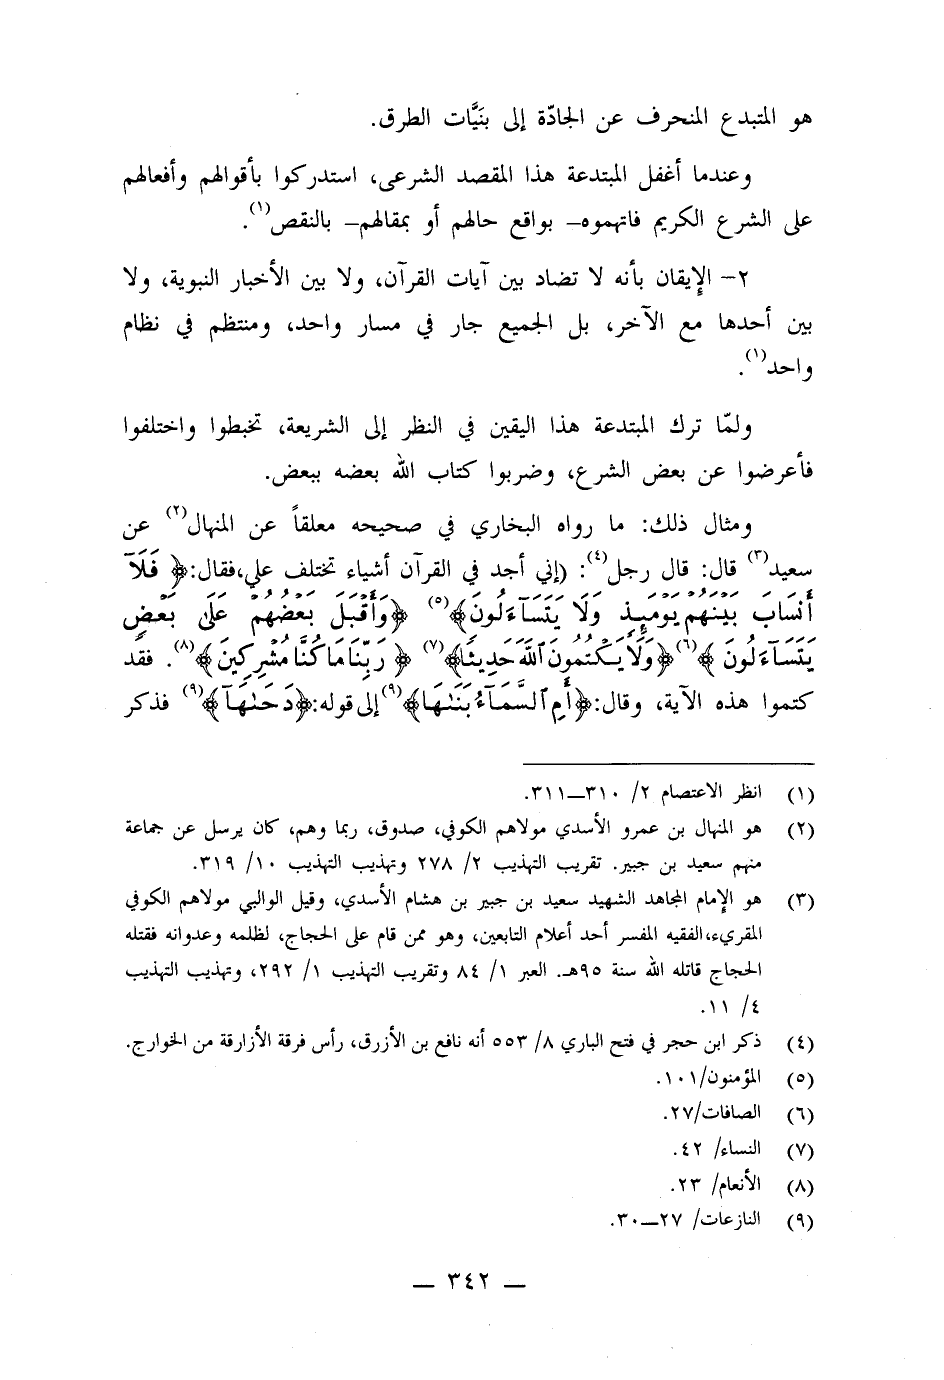 هو المتبدع المنحرف عن الجادّة إلى بنَيَّات الطرق.
وعندما أغفل المبتدعة هذا المقصد الشرعى، استدركوا بأقوالهم وأفعالهم
على الشرع الكريم فاتهموه– بواقع حالهم أو بمقالهم– بالنقص(١).
٢– الإيقان بأنه لا تضاد بين آيات القرآن، ولا بين الأخبار النبوية، ولا
بين أحدها مع الآخر، بل الجميع جار في مسار واحد، ومنتظم في نظام
واحد(١).
ولمّا ترك المبتدعة هذا اليقين في النظر إلى الشريعة، تخبطوا واختلفوا
فأعرضوا عن بعض الشرع، وضربوا كتاب الله بعضه ببعض.
ومثال ذلك: ما رواه البخاري في صحيحه معلقاً عن المنهال(٢) عن
سعيد(٣) قال: قال رجل(٤): (إني أجد في القرآن أشياء تختلف علي،فقال:﴿ فَلَآ
أَنسَابَ بَيْنَهُمْ يَوْمَئِذٍ وَلَا يَتَسَآءَلُونَ﴾(٥) ﴿وَأَقْبَلَ بَعْضُهُمْ عَلَىٰ بَعْضٍ
يَتَسَآءَلُونَ ﴾(٦)﴿وَلَا يَكْتُمُونَ ٱللَّهَ حَدِيثًا﴾(٧) ﴿ رَبِّنَا مَا كُنَّا مُشْرِكِينَ ﴾(٨). فقد
كتموا هذه الآية، وقال:﴿أَمِ ٱلسَّمَآءُ بَنَىٰهَا﴾(٩)إلى قوله:﴿دَحَىٰهَآ﴾(٩) فذكر
(١) انظر الاعتصام ٢/ ٣١٠—٣١١.
(٢) هو المنهال بن عمرو الأسدي مولاهم الكوفي، صدوق، ربما وهم، كان يرسل عن جماعة
منهم سعيد بن جبير. تقريب التهذيب ٢/ ٢٧٨ وتهذيب التهذيب ١٠/ ٣١٩.
(٣) هو الإمام المجاهد الشهيد سعيد بن جبير بن هشام الأسدي، وقيل الوالبي مولاهم الكوفي
المقريء،الفقيه المفسر أحد أعلام التابعين، وهو ممن قام على الحجاج، لظلمه وعدوانه فقتله
الحجاج قاتله الله سنة ٩٥هـ. العبر ١/ ٨٤ وتقريب التهذيب ١/ ٢٩٢، وتهذيب التهذيب
٤/ ١١.
(٤) ذكر ابن حجر في فتح الباري ٨/ ٥٥٣ أنه نافع بن الأزرق، رأس فرقة الأزارقة من الخوارج.
(٥) المؤمنون/١٠١.
(٦) الصافات/٢٧.
(٧) النساء/ ٤٢.
(٨) الأنعام/ ٢٣.
(٩) النازعات/ ٢٧—٣٠.
— ٣٤٢ —